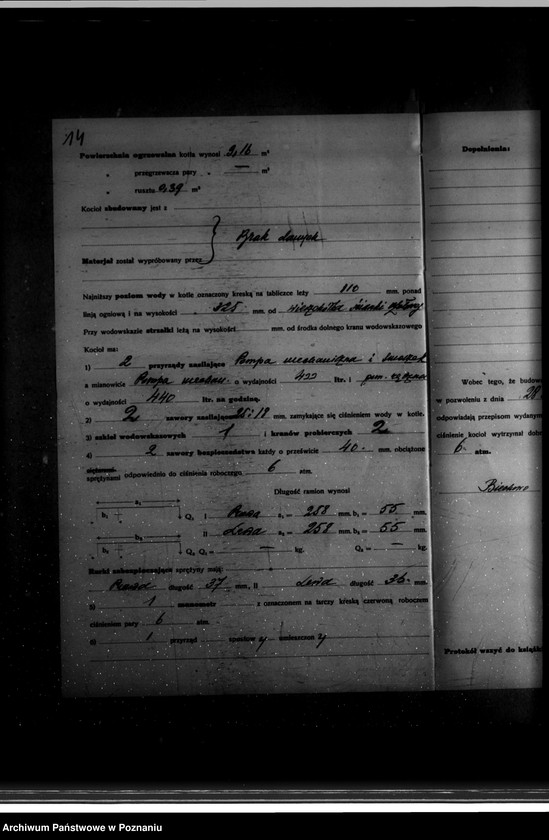 14
Powierzchnia ogrzewalna kotła wynosi 9,16 m²
„ przegrzewacza pary „ — m²
„ ruszta 0,39 m²
Kocioł zbudowany jest z
Brak danych
Materjał został wypróbowany przez
Najniższy poziom wody w kotle oznaczony kreską na tabliczce leży 110 mm. ponad
linją ogniową i na wysokości 525 mm. od wierzchołka
Przy wodowskazie strzałki leżą na wysokości mm. od środka dolnego kranu wodowskazowego
Kocioł ma:
1) 2 przyrządy zasilające Pompa mechaniczna i
a mianowicie Pompa mechan. o wydajności 400 ltr. i
o wydajności 440 ltr. na godzinę.
2) 2 zawory zasilające 25.18 mm. zamykające się ciśnieniem wody w kotle.
3) szkieł wodowskazowych 1 i kranów probierczych 2
4) 2 zawory bezpieczeństwa każdy o prześwicie 40.- mm. obciążone
sprężynami odpowiednio do ciśnienia roboczego 6 atm.
Długość ramion wynosi
a₁
b₁ Q₁ I Prawa a₁ = 258 mm. b₁ = 55 mm.
II Lewa a₂ = 258 mm. b₂ = 55 mm.
Q₂ Q₁ = — kg. Q₂ = — kg.
Rurki zabezpieczające sprężyny mają:
Prawa długość 37 mm, II Lewa długość 36 mm.
5) 1 manometr z oznaczoném na tarczy kreską czerwoną roboczem
ciśnieniem pary 6 atm.
6) 1 przyrząd sposobu y umieszczon y
Dopełnienia:
Wobec tego, że budow
w pozwoleniu z dnia 28
odpowiadają przepisom wydanym
ciśnienie kocioł wytrzymał dobr
6 atm.
Protokół wszyć do książk
Archiwum Państwowe w Poznaniu